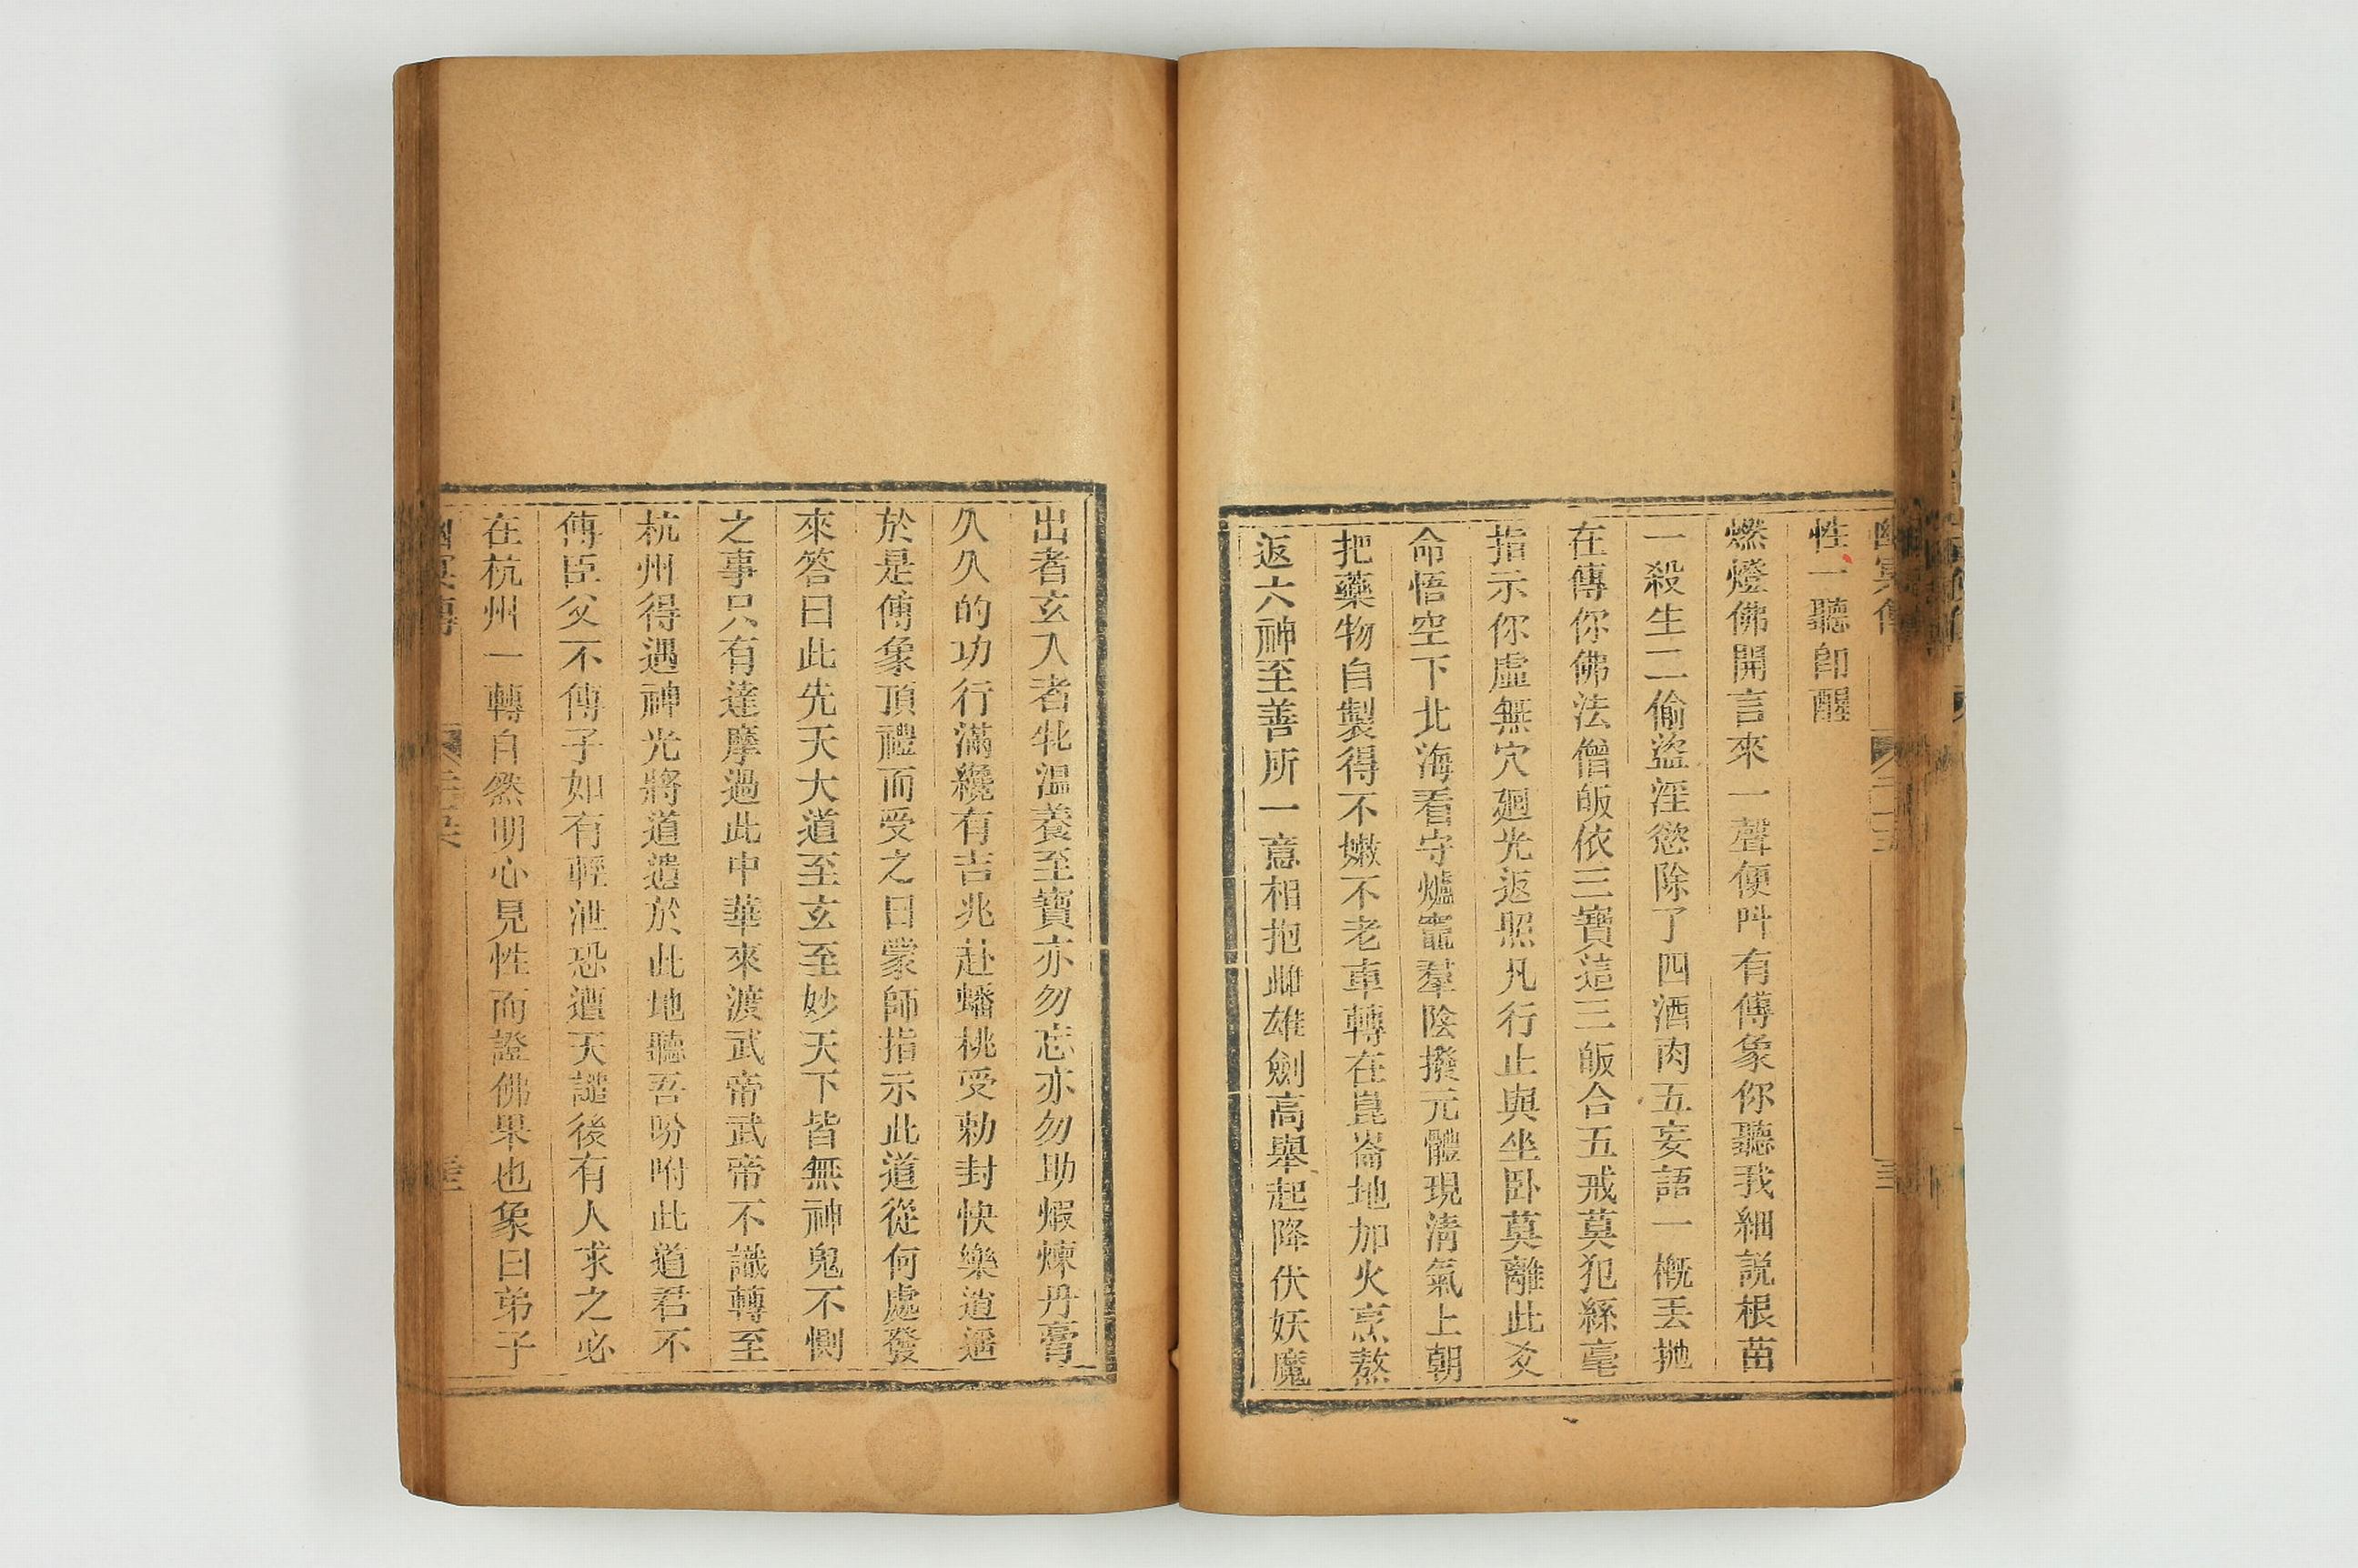 性一聽卽醒
燃燈佛開言來一聲便呌有傅象你聽我細説根苗
一殺生二偷盜淫慾除了四酒肉五妄語一概丢抛
在傳你佛法僧皈依三寶這三皈合五戒莫犯絲毫
指示你虛無穴廻光返照凡行止與坐卧莫離此爻
命悟空下北海看守爐竈羣陰撥元體現淸氣上朝
把藥物自製得不嫩不老車轉在崑崙地加火烹熬
返六神至善所一意相抱雌雄劍高舉起降伏妖魔
出者玄入者牝溫養至寶亦勿忘亦勿助煆煉丹膏
久久的功行滿纔有吉兆赴蟠桃受勅封快樂逍遥
於是傅象頂禮而受之曰蒙師指示此道從何處發
來答曰此先天大道至玄至妙天下皆無神鬼不惻
之事只有達摩過此中華來渡武帝武帝不識轉至
杭州得遇神光將道遺於此地聽吾吩咐此道君不
傳臣父不傳子如有輕泄恐遭天譴後有人求之必
在杭州一轉自然明心見性而證佛果也象曰弟子
幽冥傳